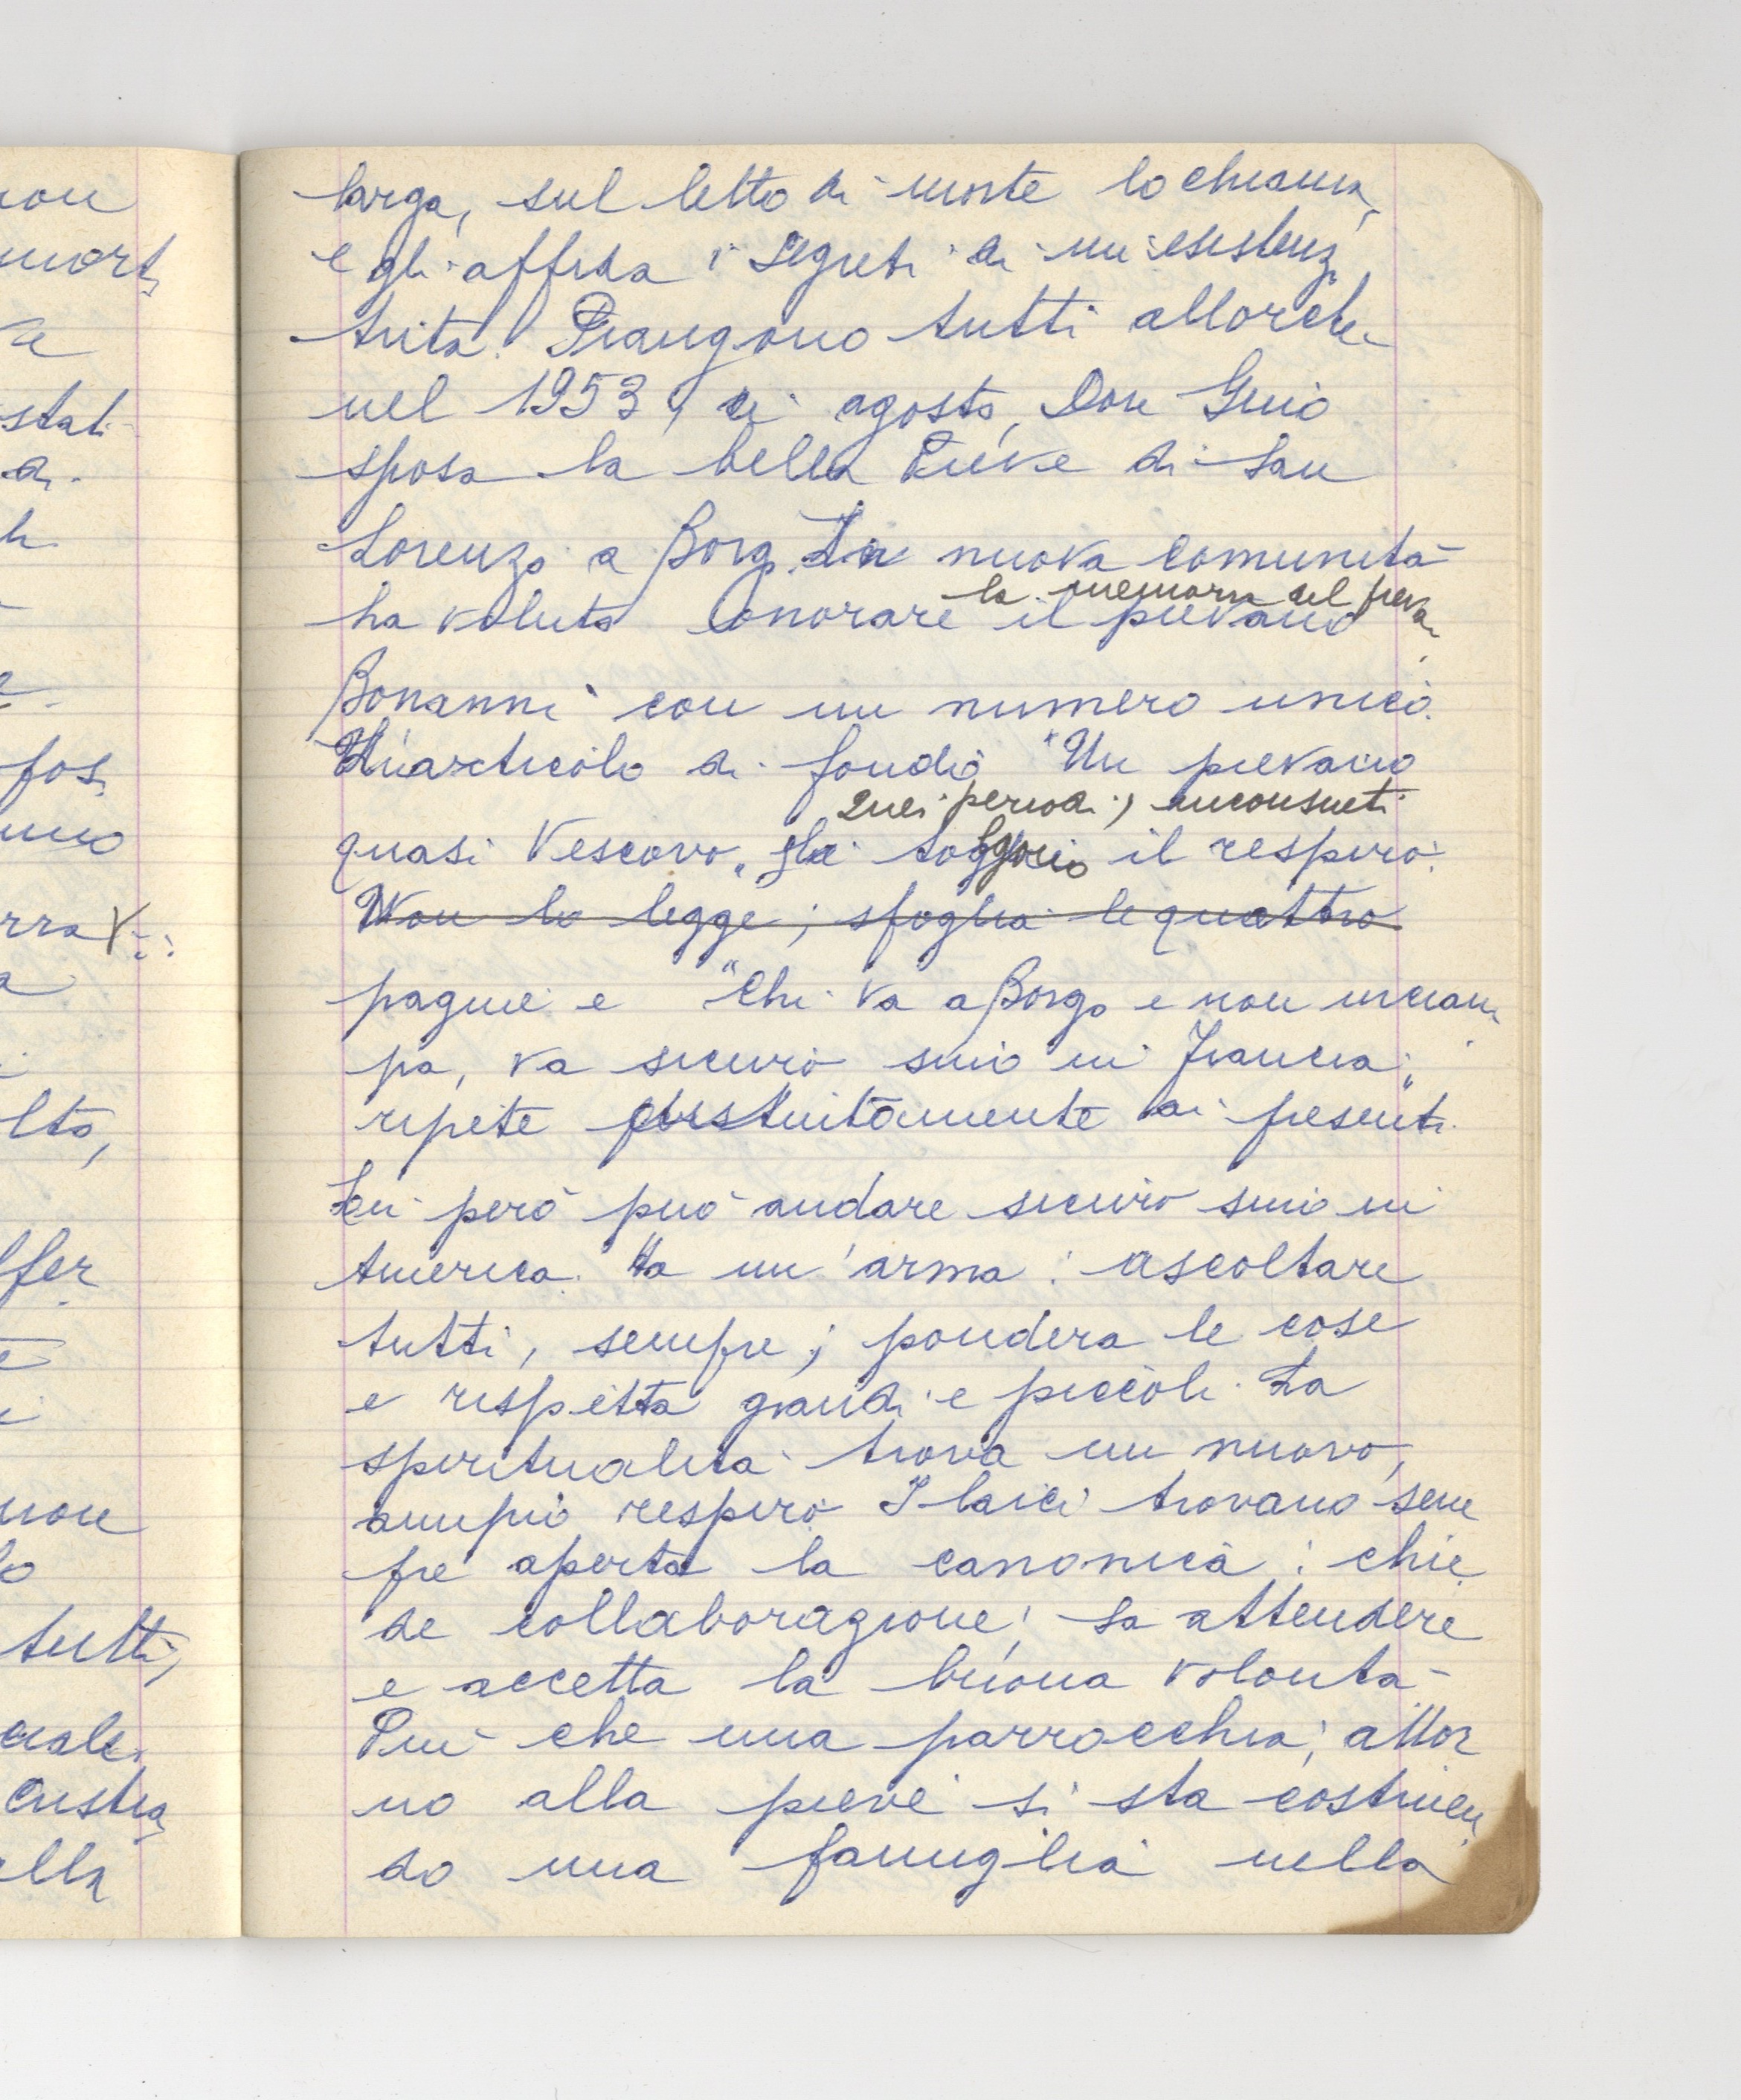 larga, sul letto di morte lo chiama
e gli affida i segreti di un'esistenza
trita. Piangono tutti allorché
nel 1953, di agosto, Don Gino
sposa la bella Pieve di San
Lorenzo a Borgo. La nuova comunità
la memoria del pieva
ha voluto onorare il pievano
Bonanni con un numero unico.
Un articolo di fondo "Un pievano
quei periodi, inconsueti
quasi Vescovo" gli tolgono il respiro.
Non lo legge; sfoglia le quattro
pagine e "Chi va a Borgo e non inciam
pa, va sicuro sino in Francia"
ripete ai presenti.
Lui però può andare sicuro sino in
America. Ha un'arma: ascoltare
tutti, sempre; pondera le cose
e rispetta grandi e piccoli. La
spiritualità trova un nuovo,
ampio respiro. I laici trovano sem
pre aperta la canonica: chie
de collaborazione; sa attendere
e accetta la buona volontà
Più che una parrocchia, attor
no alla pieve si sta costruen
do una famiglia nella
non
mort
stati
fos
rra
lto,
ffer
non
tutti,
ciale.
cristia
ella